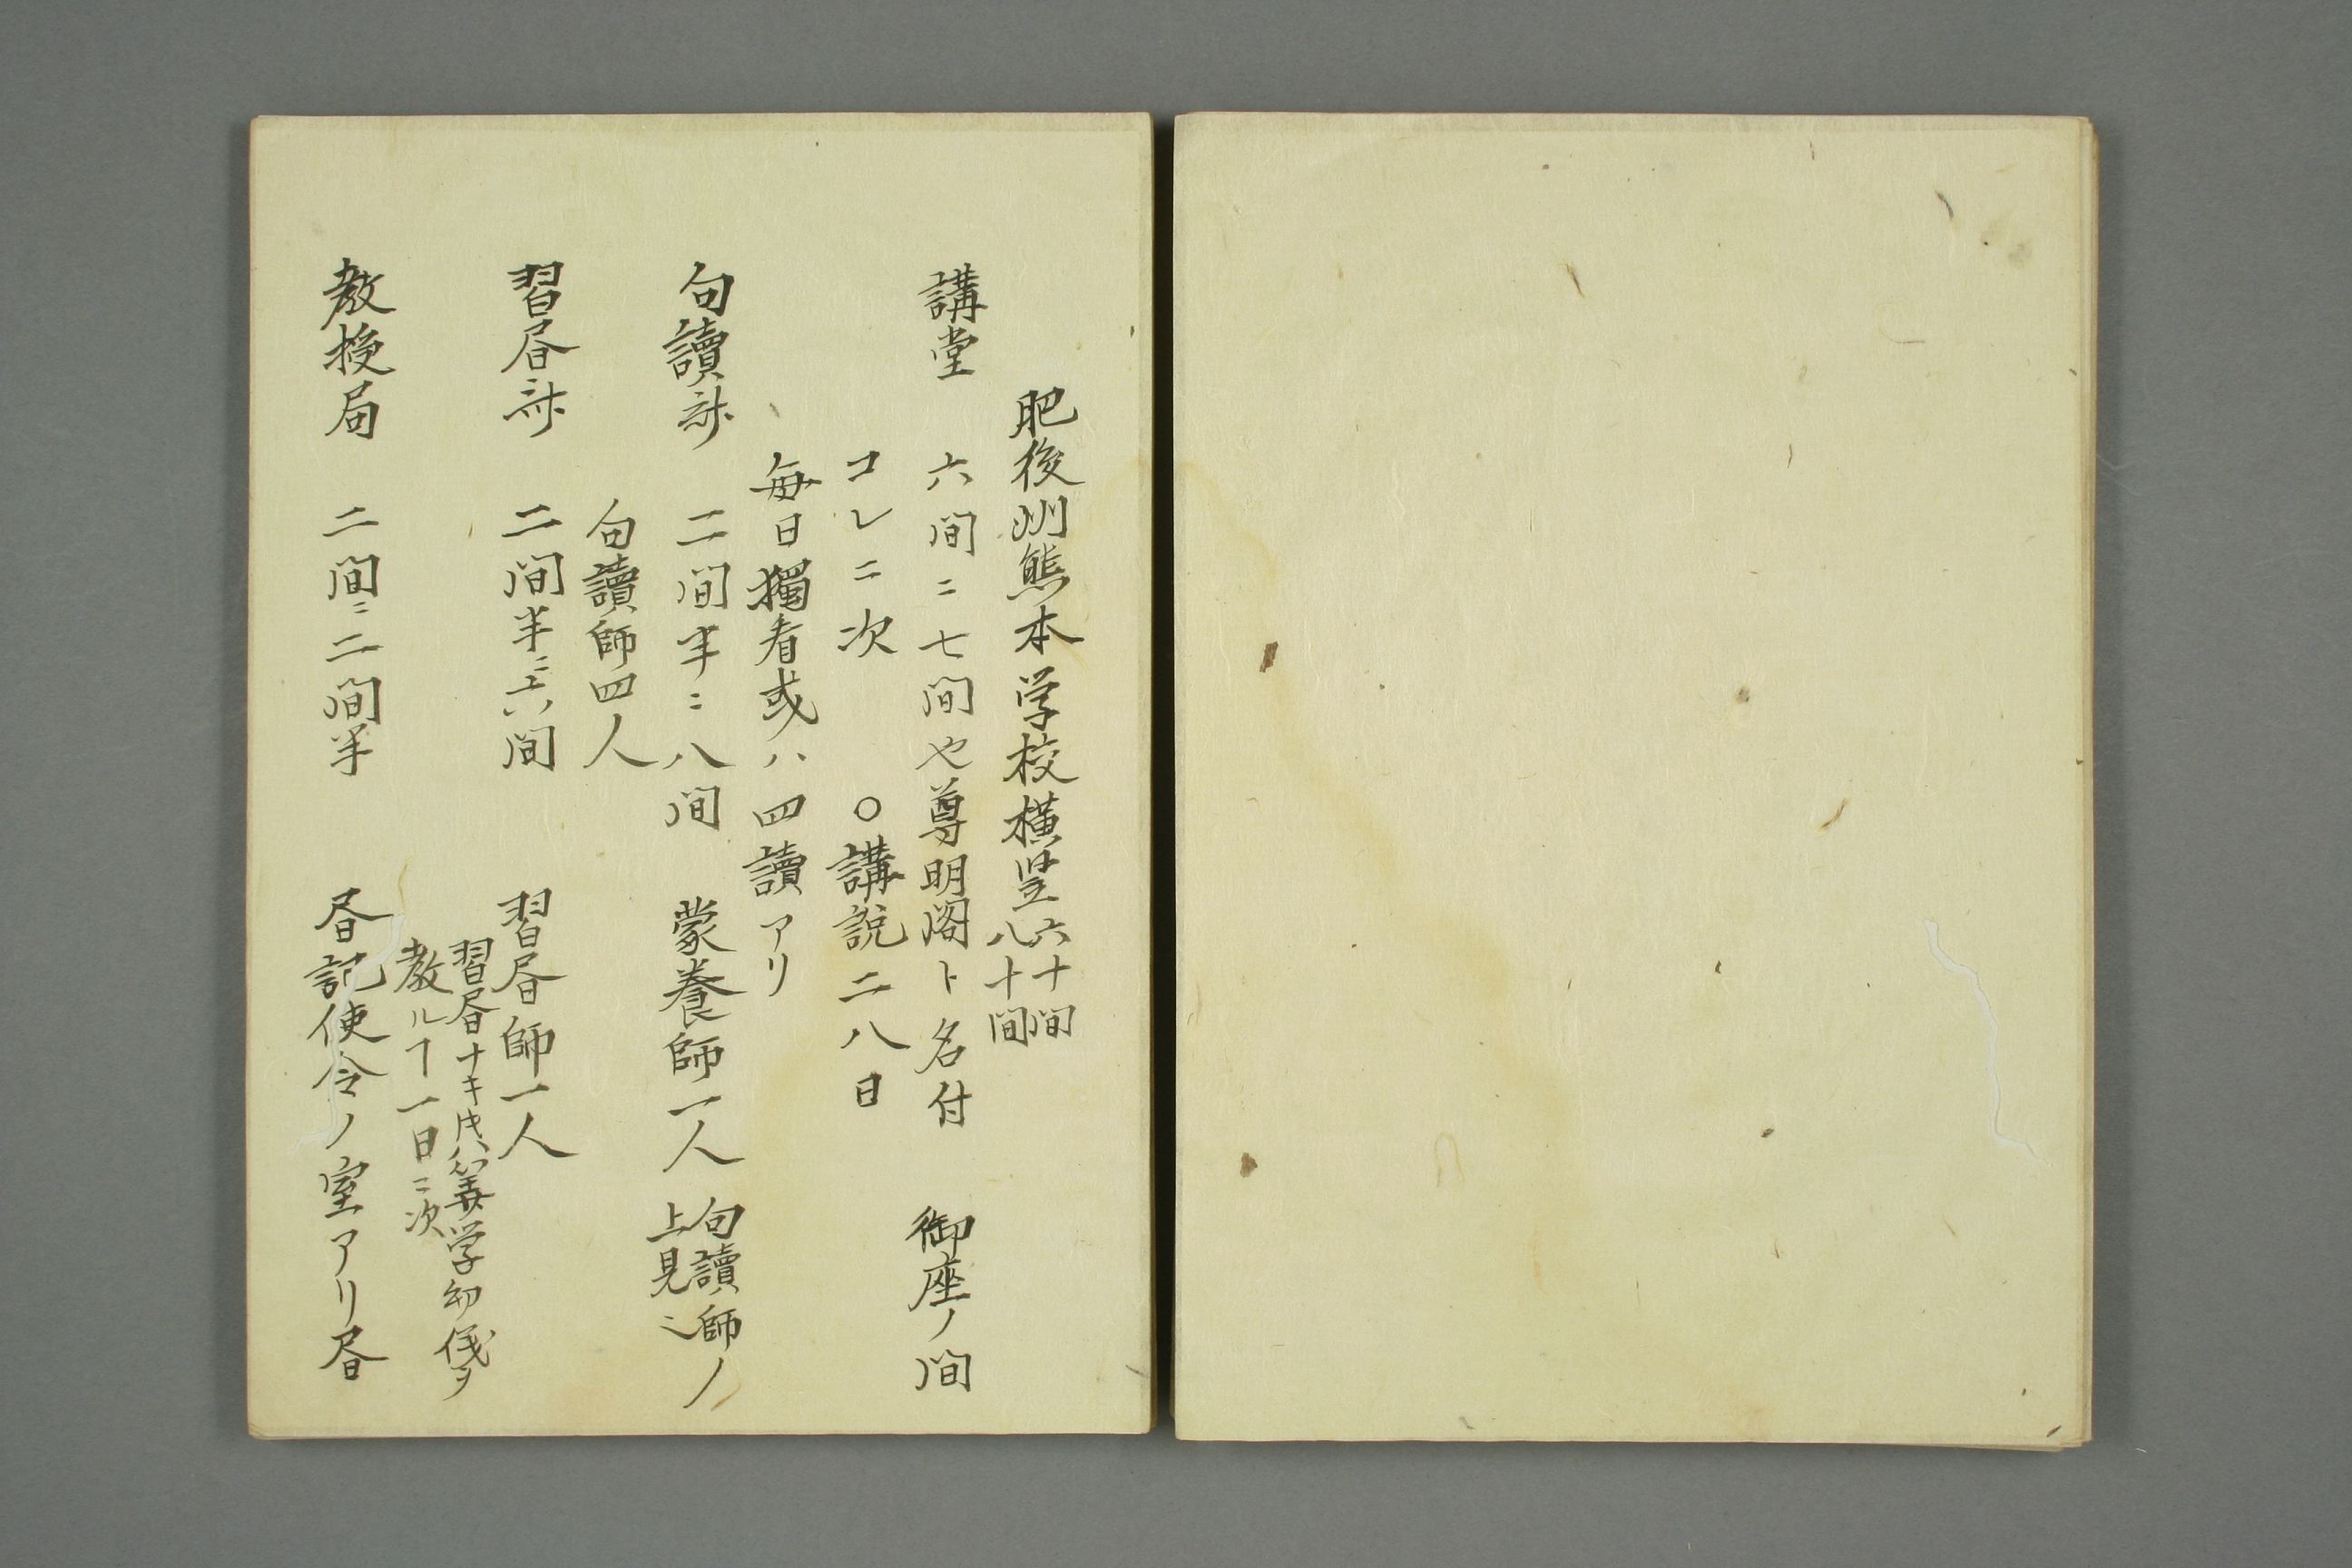 肥後州熊本学校横竪六十間
八十間
講堂 六間ニ七間也尊明閣ト名付 御座ノ間
コレニ次 〇講説二八日
毎日獨看或ハ四讀アリ
句讀斎 二間半ニ八間 蒙養師一人 句讀師ノ
上見ニ
句讀師四人
習昏斎 二間半ニ六間 習昏師一人
習昏ナキ時ハ筭学幼儀ヲ
教ルヿ一日ニ次
教授局 二間ニ二間半 昏記使令ノ室アリ昏